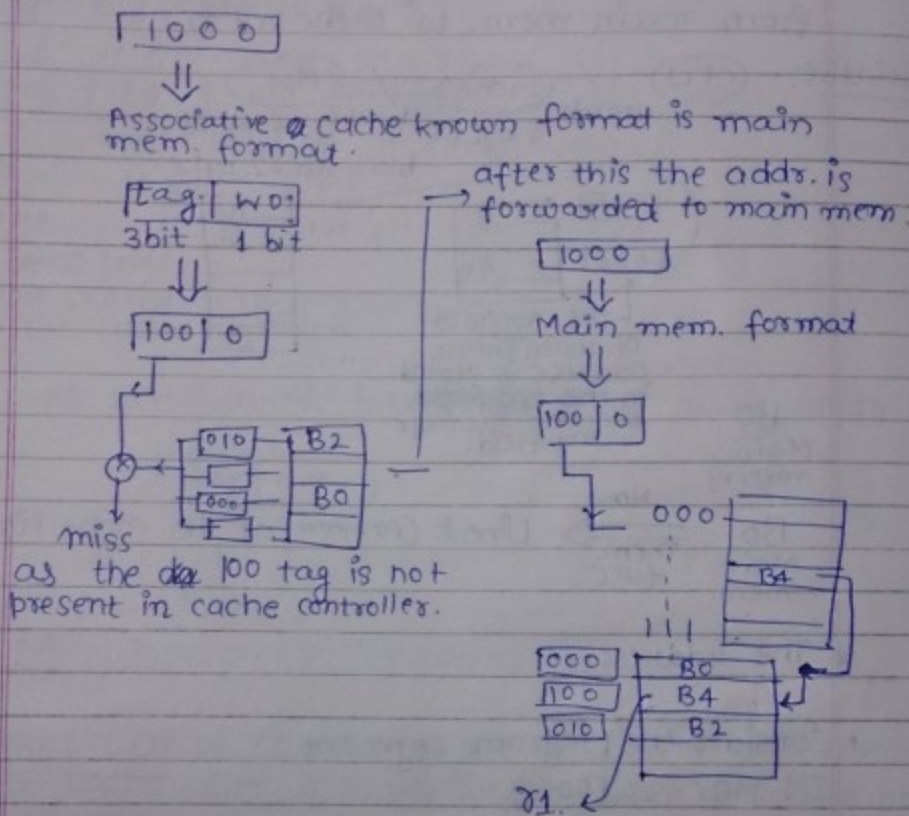 1000
Associative cache known format is main
mem. format.
tag. | wo.
3bit 1 bit
100 | 0
010 B2
000 B0
miss
as the 100 tag is not
present in cache controller.
after this the addr. is
forwarded to main mem
1000
Main mem. format
100 | 0
000
B4
111
000 B0
100 B4
010 B2
r1.